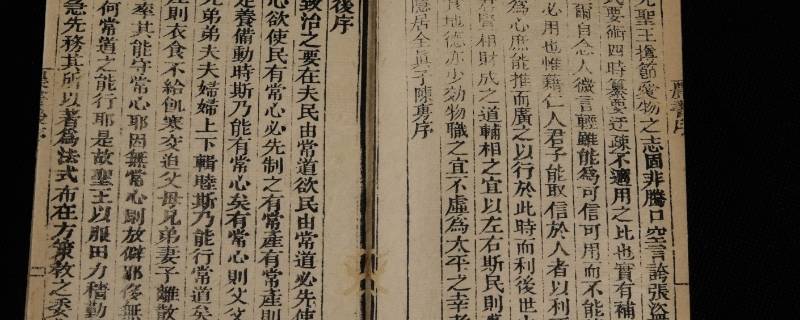 農書序
聖王撙節愛物之志固非騰口空言誇張盜
民要術四時纂要迂疎不適用之比也實有補
謂自念人微言輕雖能為可信可用而不能
必用也惟藉仁人君子能取信於人者以利
為心庶能推而廣之以行於此時而利後世
賢相財成之道輔相之宜以左右斯民則
地德亦少効物職之宜不虛為太平之幸
隱居全真子陳旉序
後序
致治之要在夫民由常道欲民由常道必先使
心欲使民有常心必先制之有常產有常產則
養備動時斯乃能有常心矣有常心則父父
兄弟弟夫夫婦婦上下輯睦斯乃能行常道矣
則衣食不給飢寒交迫父母兄弟妻子離散
率其能守常心耶因無常心則放僻邪侈無
何常道之能行耶是故聖王以服田力穡勤
急先務其所以著為法式布在方策教之委